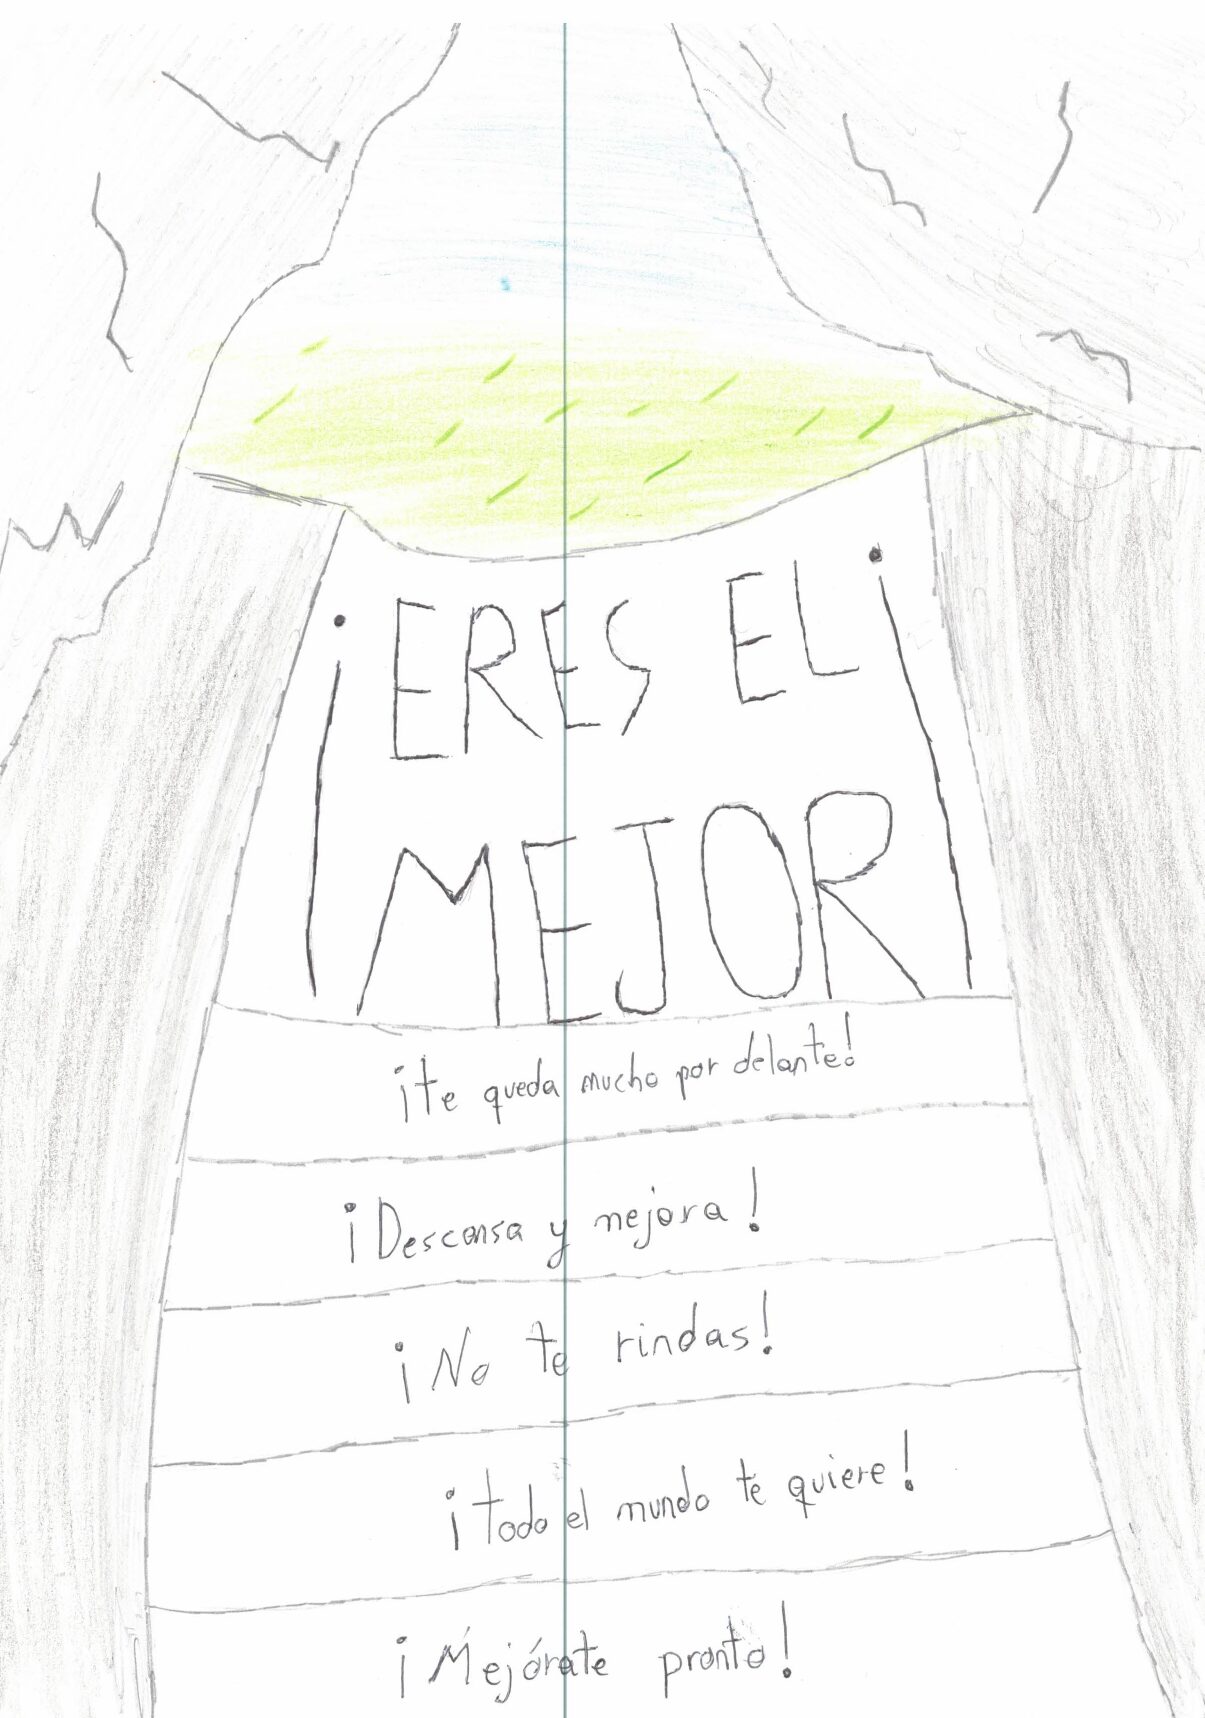 ¡ERES EL¡
MEJOR
¡te queda mucho por delante!
¡Descansa y mejora!
¡No te rindas!
¡todo el mundo te quiere!
¡Mejórate pronto!